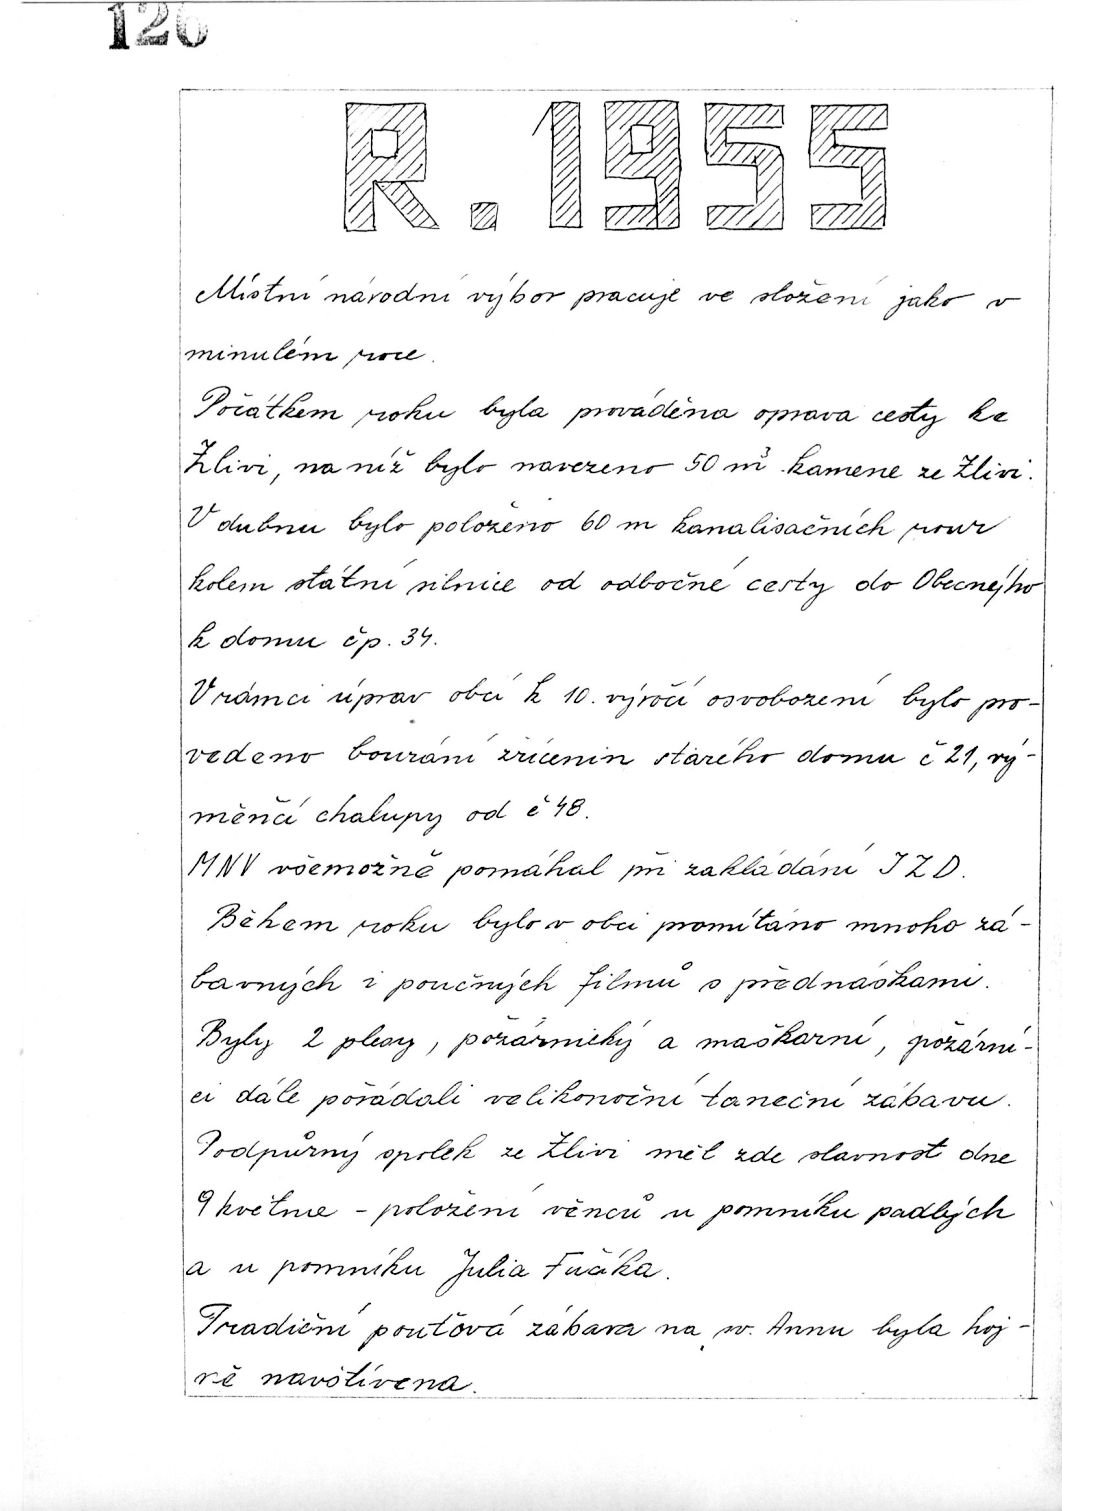 126
R. 1955
Místní národní výbor pracuje ve složení jako v
minulém roce.
Počátkem roku byla prováděna oprava cesty ke
Zlivi, na níž bylo navezeno 50 m³ kamene ze Zlivi.
V dubnu bylo položeno 60 m kanalisačních rour
kolem státní silnice od odbočné cesty do Obecnejho
k domu čp. 34.
V rámci úprav obcí k 10. výročí osvobození bylo pro-
vedeno bourání zřícenin starého domu č 21, vý-
měnčí chalupy od č 48.
MNV všemožně pomáhal při zakládání JZD.
Během roku bylo v obci promítáno mnoho zá-
bavných i poučných filmů s přednáškami.
Byly 2 plesy, požárnický a maškarní, požární-
ci dále pořádali velikonoční taneční zábavu.
Podpůrný spolek ze Zlivi měl zde slavnost dne
9 května - položení věnců u pomníku padlých
a u pomníku Julia Fučíka.
Tradiční pouťová zábava na sv. Annu byla hoj-
ně navštívena.